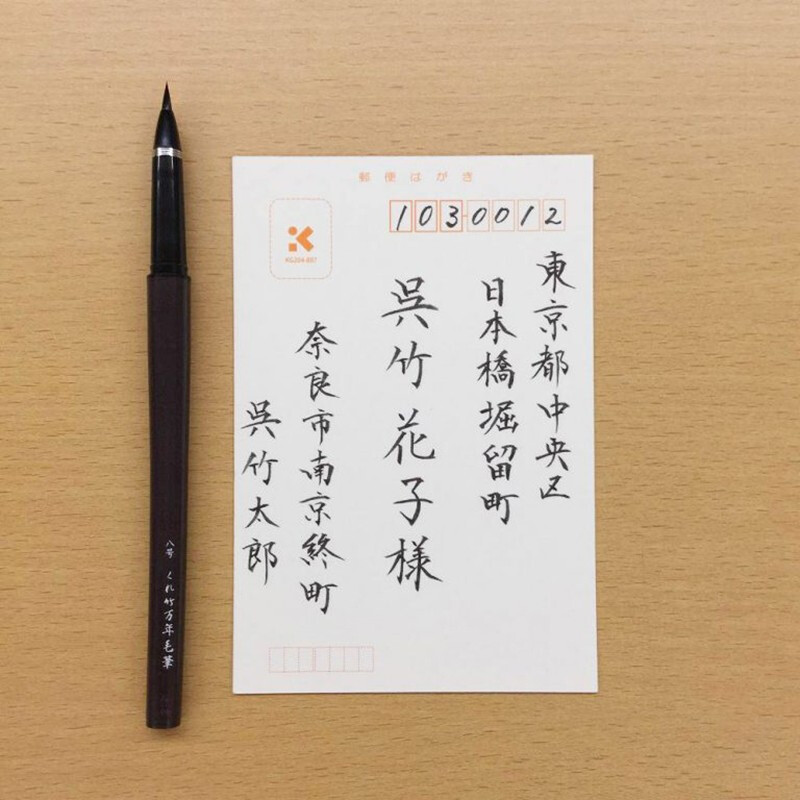 郵便はがき
1030012
KG204-807
東京都中央区
日本橋堀留町
呉竹花子様
奈良市南京終町
呉竹太郎
八号 くれ竹万年毛筆